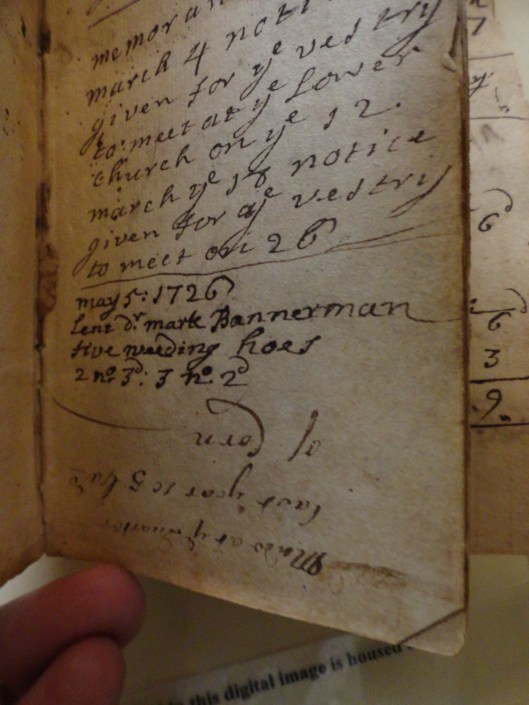 memoran
march 4 noti
given for ye vestry
to meet at ye Lower
church on ye 12.
march ye 18 notice
given for ye vestry
to meet on 26
may 5: 1726
Lent dr mark Bannerman
five weeding hoes
2 no. 3d: 3 no. 2d
Made at ye quarter
last year 105 bar
of Corn
7
6
6
3
9
this digital image is housed